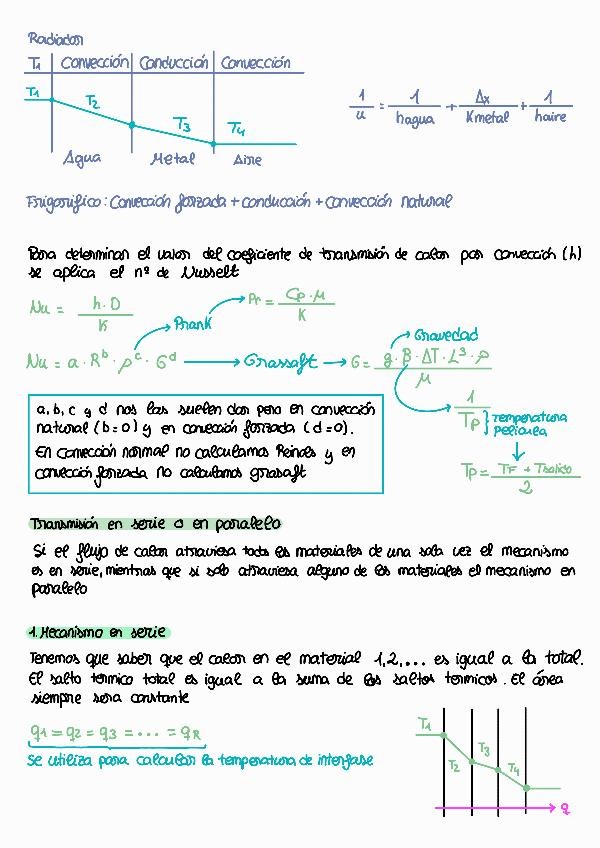 Radiador
T1 Convección Conducción Convección
T1
T2
T3
T4
Agua Metal Aire
1/u = 1/hagua + Δx/Kmetal + 1/haire
Frigorifico: Convección forzada + conducción + convección natural
Para determinar el valor del coeficiente de transmisión de calor por convección (h)
se aplica el nº de Nusselt
Nu = h·D/K
Prank
Pr = Cp·μ/K
Nu = a·R^b·p^c·G^d → Grassaft → G = g·β·ΔT·L³·ρ/μ
Gravedad
1/Tp } temperatura
pelicula
Tp = TF + Tsolido/2
a, b, c y d nos las suelen dar pero en convección
natural (b=0) y en convección forzada (d=0).
En convección normal no calculamos Reinols y en
convección forzada no calculamos grasaft
Transmisión en serie o en paralelo
Si el flujo de calor atraviesa todos los materiales de una sola vez el mecanismo
es en serie, mientras que si solo atraviesa alguno de los materiales el mecanismo en
paralelo
1. Mecanismo en serie
Tenemos que saber que el calor en el material 1,2,... es igual a la total.
El salto termico total es igual a la suma de los saltos termicos. El área
siempre sera constante
q1 = q2 = q3 = ... = qR
Se utiliza para calcular la temperatura de interfase
T1
T2
T3
T4
q